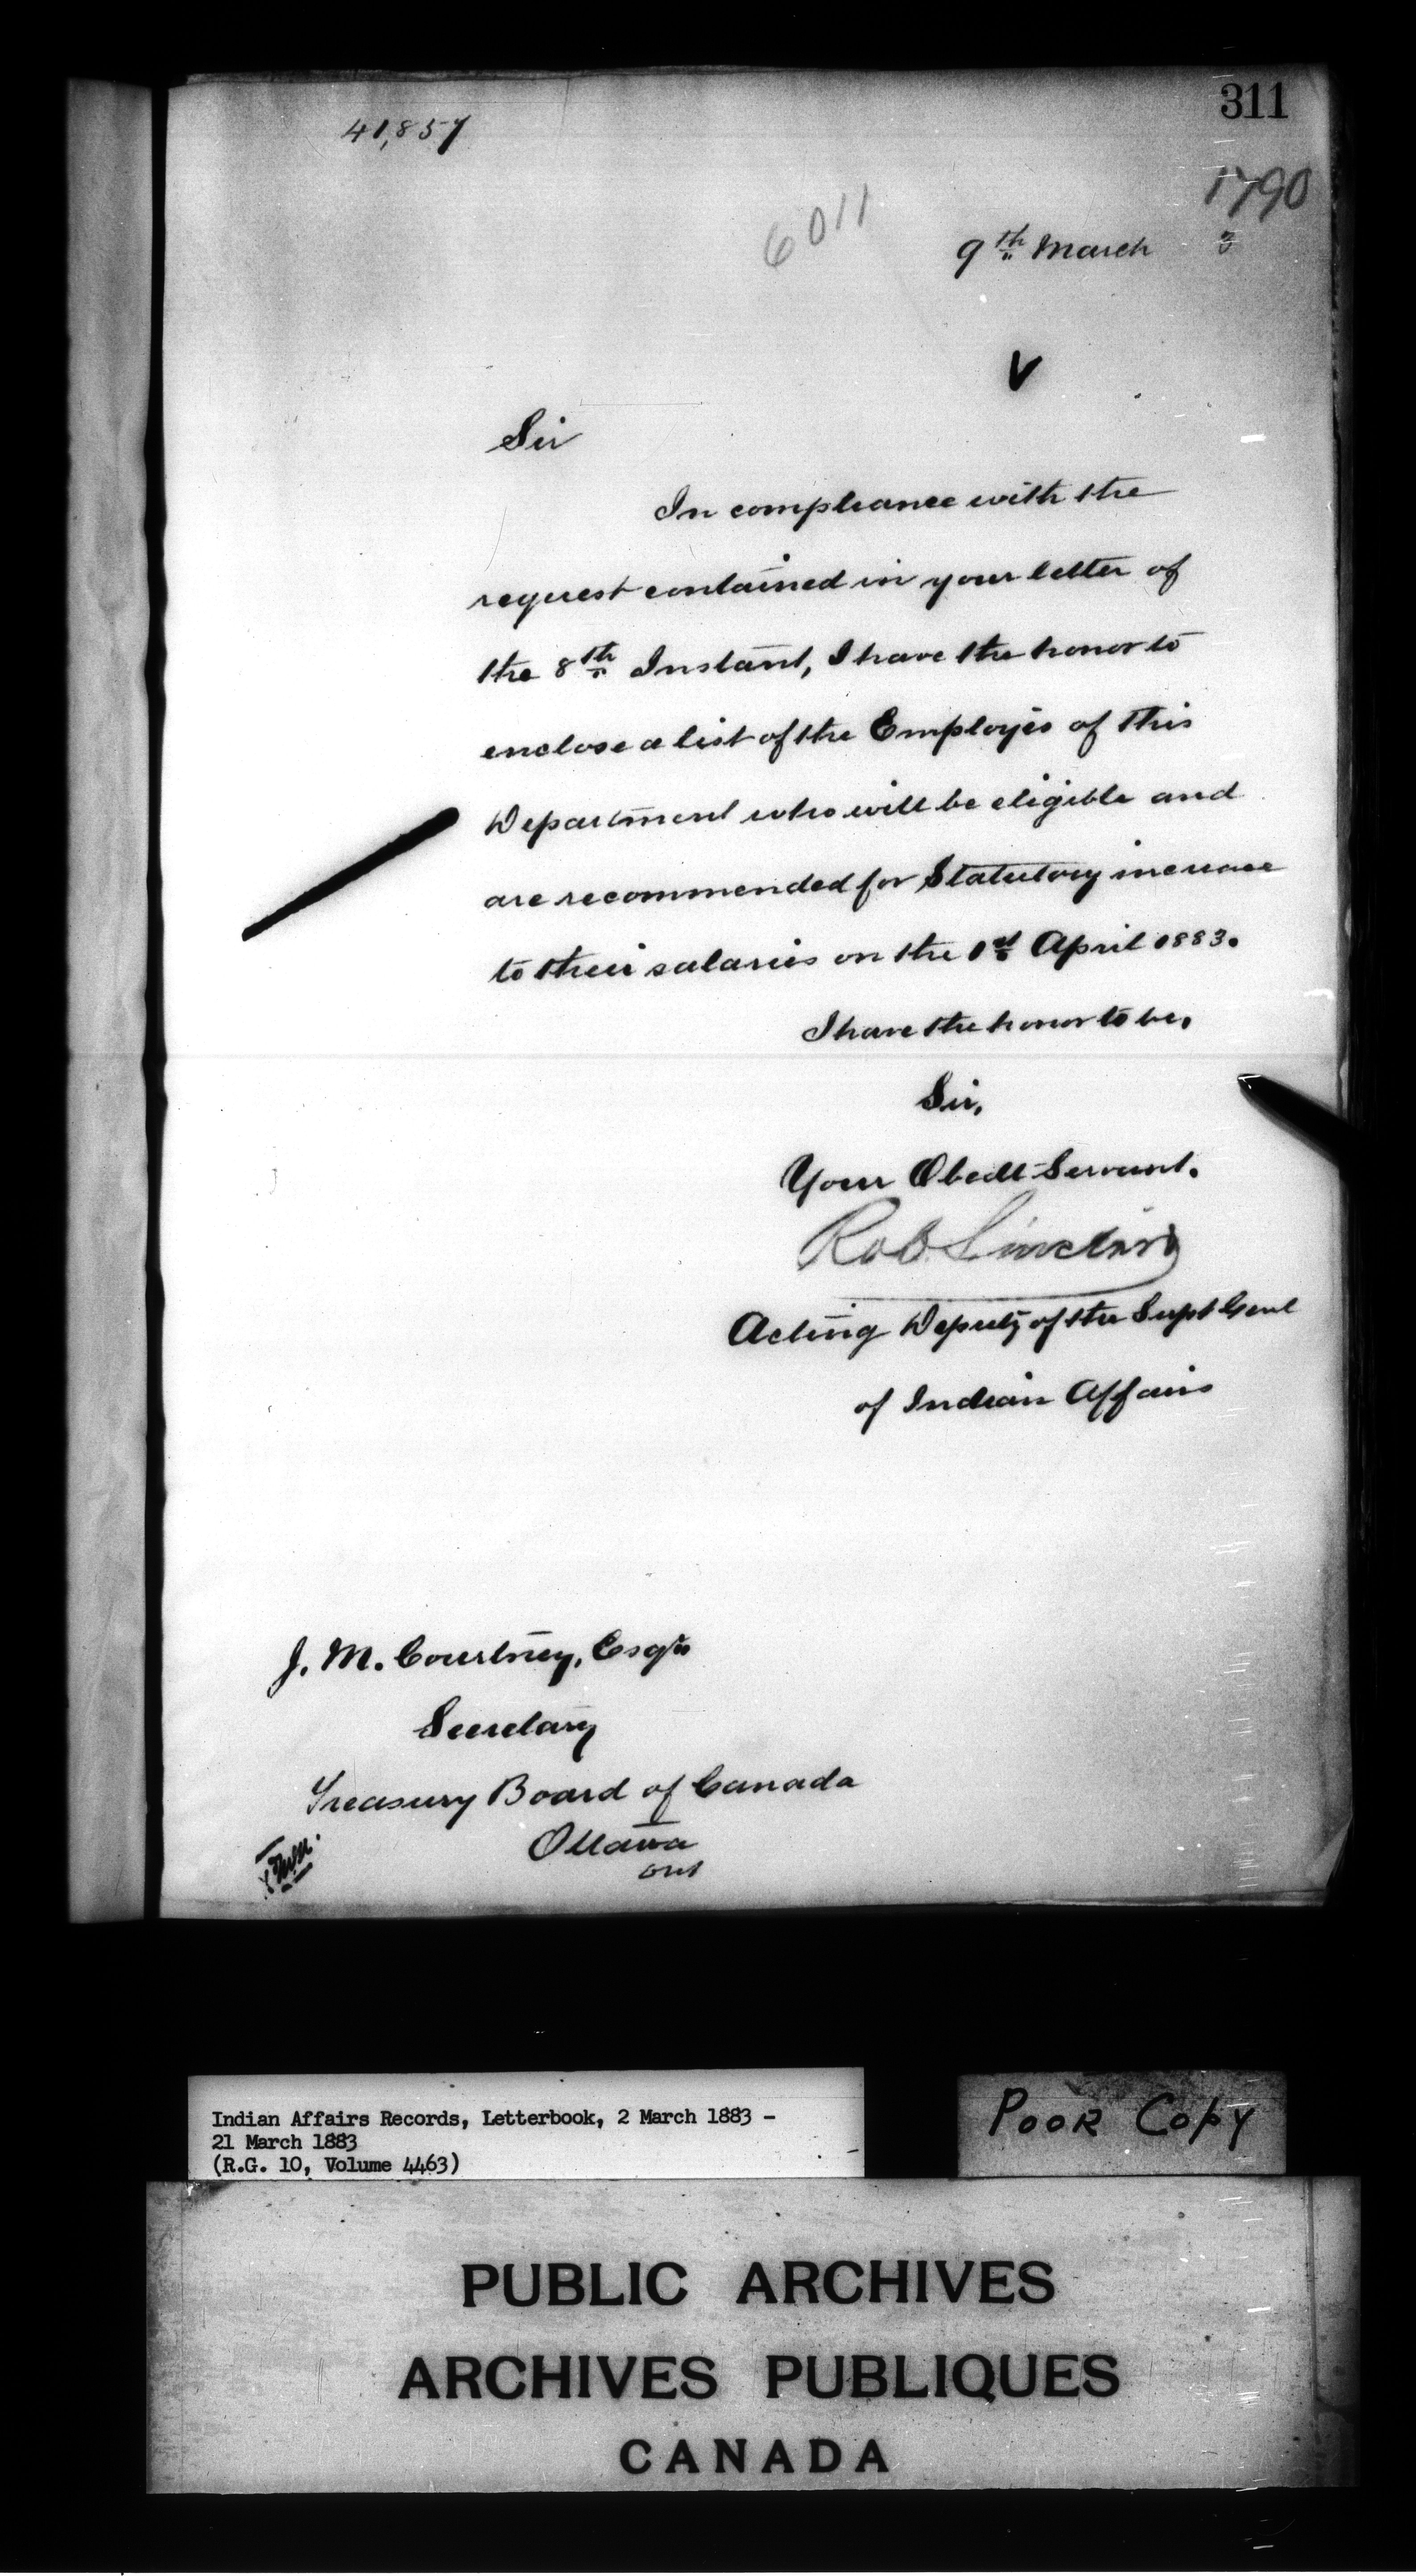 311
41,857
1790
6011
9th March 3
V
Sir
In compliance with the
request contained in your letter of
the 8th Instant, I have the honor to
enclose a list of the Employés of this
Department who will be eligible and
are recommended for Statutory increase
to their salaries on the 1st April 1883.
I have the honor to be,
Sir,
Your Obedt Servant.
Rob. Sinclair
Acting Deputy of the Supt Genl
of Indian Affairs
J. M. Courtney, Esqre
Secretary
Treasury Board of Canada
Ottawa
Ont
Indian Affairs Records, Letterbook, 2 March 1883 -
21 March 1883
(R.G. 10, Volume 4463)
POOR COPY
PUBLIC ARCHIVES
ARCHIVES PUBLIQUES
CANADA